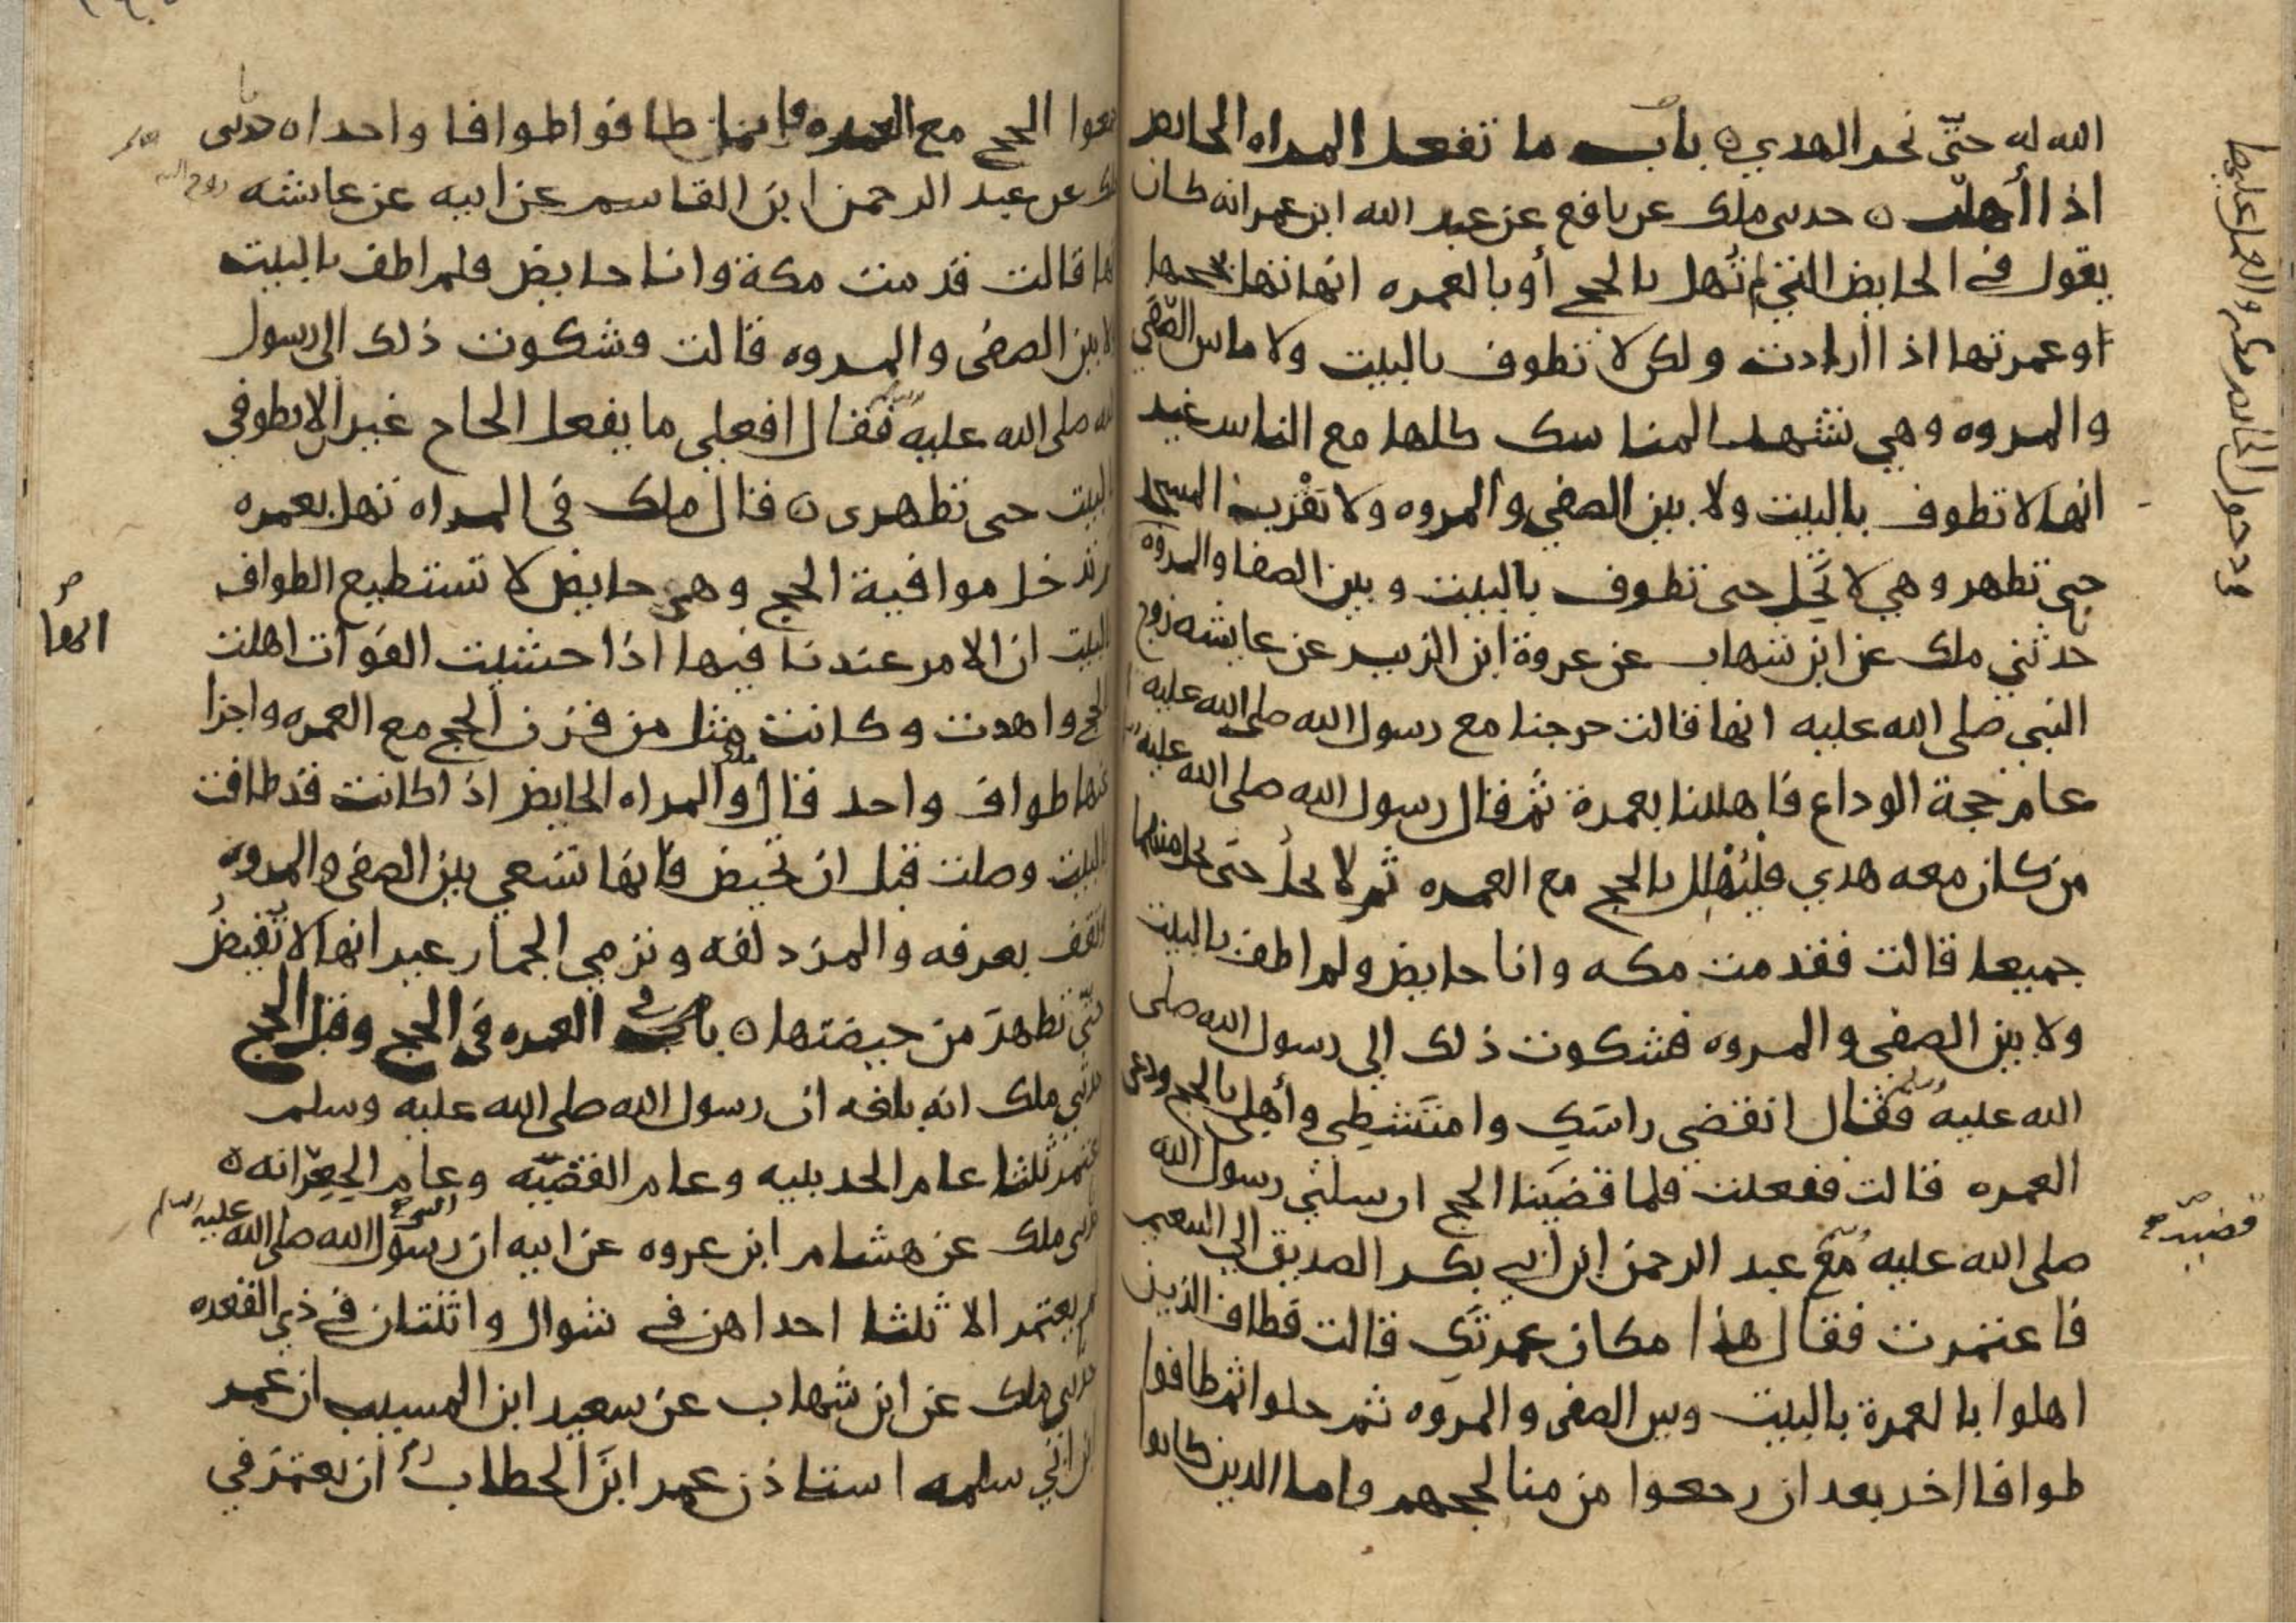 الله له حتى نحر الهدي ه باب ما تفعل المراه الحايض
اذا أهلت ه حدثني ملك عن نافع عن عبد الله ابن عمر انه كان
يقول في الحايض التي تُهل بالحج أو بالعمره انها تهل بحجها
او عمرتها اذا أرادت ولكن لا تطوف بالبيت ولا ما بين الصفي
والمروه وهي تشهد المناسك كلها مع الناس غير
انها لا تطوف بالبيت ولا بين الصفي والمروه ولا تقرب المسجد
حتى تطهر وهي لا تحل حتى تطوف بالبيت وبين الصفا والمروه
حدثني ملك عن ابن شهاب عن عروة ابن الزبير عن عايشه زوج
النبي صلى الله عليه انها قالت خرجنا مع رسول الله صلى الله عليه
عام حجة الوداع فاهللنا بعمرة ثم قال رسول الله صلى الله عليه
من كان معه هدي فليُهْلِل بالحج مع العمره ثم لا يحل حتى يحل منهما
جميعا قالت فقدمت مكه وانا حايض ولم اطف بالبيت
ولا بين الصفى والمروه فشكوت ذلك الى رسول الله صلى
الله عليه فقال انقضي راسَكِ وامتَشِطِي وأهلي بالحج ودعي
العمره قالت ففعلت فلما قضَينا الحج ارسلني رسول الله
صلى الله عليه مع عبد الرحمن ابن ابي بكر الصديق الى التنعيم
فاعتمرت فقال هذا مكان عمرتكِ قالت فطاف الذين
اهلوا بالعمرة بالبيت وبين الصفى والمروه ثم حلوا ثم طافوا
طوافا اخر بعد ان رجعوا من منا لحجهم واما الذين كانوا
قضيته
جمعوا الحج مع العمره فانما طافوا طوافا واحدا ه حدثني
ملك عن عبد الرحمن ابن القاسم عن ابيه عن عايشه
انها قالت قدمت مكة وانا حايض فلم اطف بالبيت
ولا بين الصفى والمروه قالت فشكوت ذلك الى رسول
الله صلى الله عليه فقال افعلي ما يفعل الحاج غير الا تطوفي
بالبيت حتى تطهري ه قال ملك في المراه تهل بعمره
ثم تدخل موافية الحج وهي حايض لا تستطيع الطواف
بالبيت ان الامر عندنا فيها اذا خشيت الفوات اهلت
بالحج واهدت وكانت مثل من قرن الحج مع العمره واجزا
عنها طواف واحد قال والمراه الحايض اذا كانت قد طافت
بالبيت وصلت قبل ان تحيض فانها تسعى بين الصفى والمروه
وتقف بعرفه والمزدلفه وترمي الجمار غير انها لا تُفيضُ
حتى تطهر من حيضتها ه باب العمره في الحج وقبل الحج
حدثني ملك انه بلغه ان رسول الله صلى الله عليه وسلم
اعتمر ثلثا عام الحديبيه وعام القضيّه وعام الجِعِرّانه ه
حدثني ملك عن هشام ابن عروه عن ابيه ان رسول الله صلى الله عليه
لم يعتمر الا ثلثا احداهن في شوال واثنتان في ذي القعده
حدثني ملك عن ابن شهاب عن سعيد ابن المسيب ان عمر
ابن ابي سلمه استاذن عمر ابن الخطاب ان يعتمر في
انها